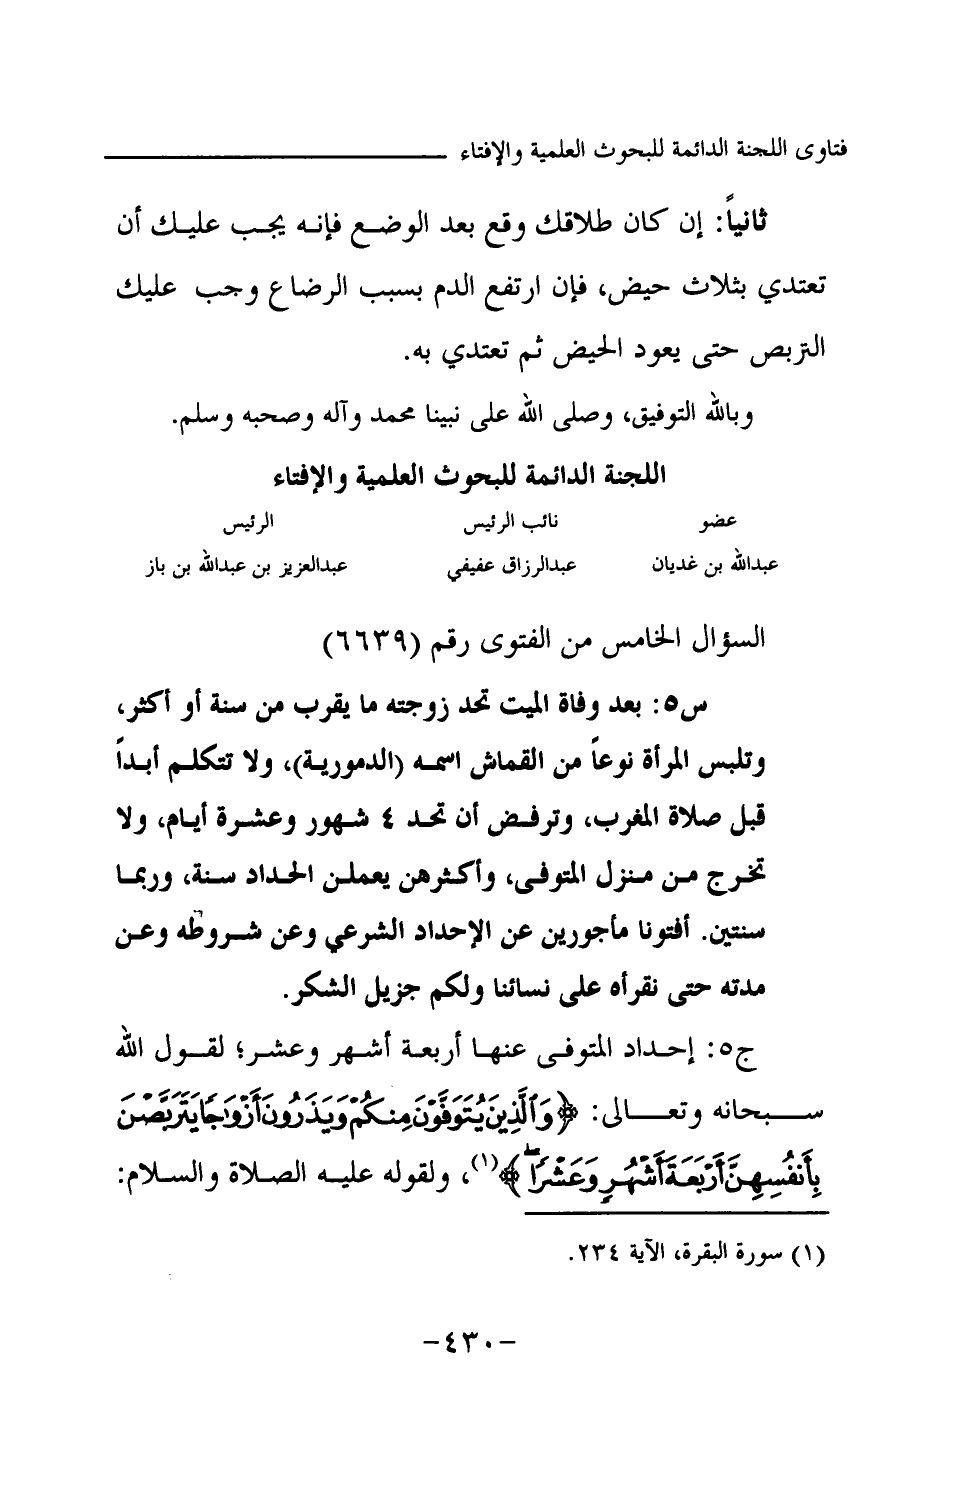 فتاوى اللجنة الدائمة للبحوث العلمية والإفتاء
ثانياً: إن كان طلاقك وقع بعد الوضع فإنه يجب عليك أن
تعتدي بثلاث حيض، فإن ارتفع الدم بسبب الرضاع وجب عليك
التربص حتى يعود الحيض ثم تعتدي به.
وبالله التوفيق، وصلى الله على نبينا محمد وآله وصحبه وسلم.
اللجنة الدائمة للبحوث العلمية والإفتاء
عضو نائب الرئيس الرئيس
عبدالله بن غديان عبدالرزاق عفيفي عبدالعزيز بن عبدالله بن باز
السؤال الخامس من الفتوى رقم (٦٦٣٩)
س٥: بعد وفاة الميت تحد زوجته ما يقرب من سنة أو أكثر،
وتلبس المرأة نوعاً من القماش اسمه (الدمورية)، ولا تتكلم أبداً
قبل صلاة المغرب، وترفض أن تحد ٤ شهور وعشرة أيام، ولا
تخرج من منزل المتوفى، وأكثرهن يعملن الحداد سنة، وربما
سنتين. أفتونا مأجورين عن الإحداد الشرعي وعن شروطه وعن
مدته حتى نقرأه على نسائنا ولكم جزيل الشكر.
ج٥: إحداد المتوفى عنها أربعة أشهر وعشر؛ لقول الله
سبحانه وتعالى: ﴿وَٱلَّذِينَ يُتَوَفَّوْنَ مِنكُمْ وَيَذَرُونَ أَزْوَٰجًا يَتَرَبَّصْنَ
بِأَنفُسِهِنَّ أَرْبَعَةَ أَشْهُرٍ وَعَشْرًا ۖ﴾(١)، ولقوله عليه الصلاة والسلام:
(١) سورة البقرة، الآية ٢٣٤.
-٤٣٠-